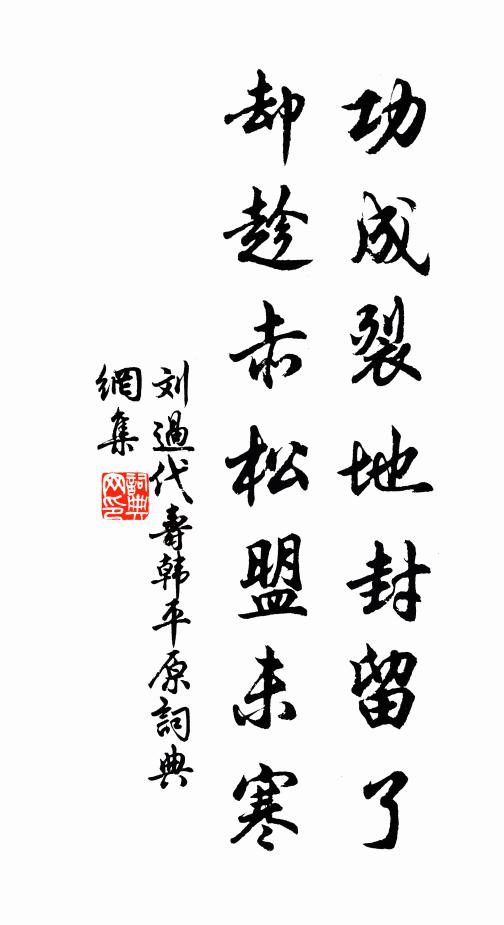 功成裂地封留了
却趁赤松盟未寒
刘過代壽韩平原詞典
網集
詞典
网印